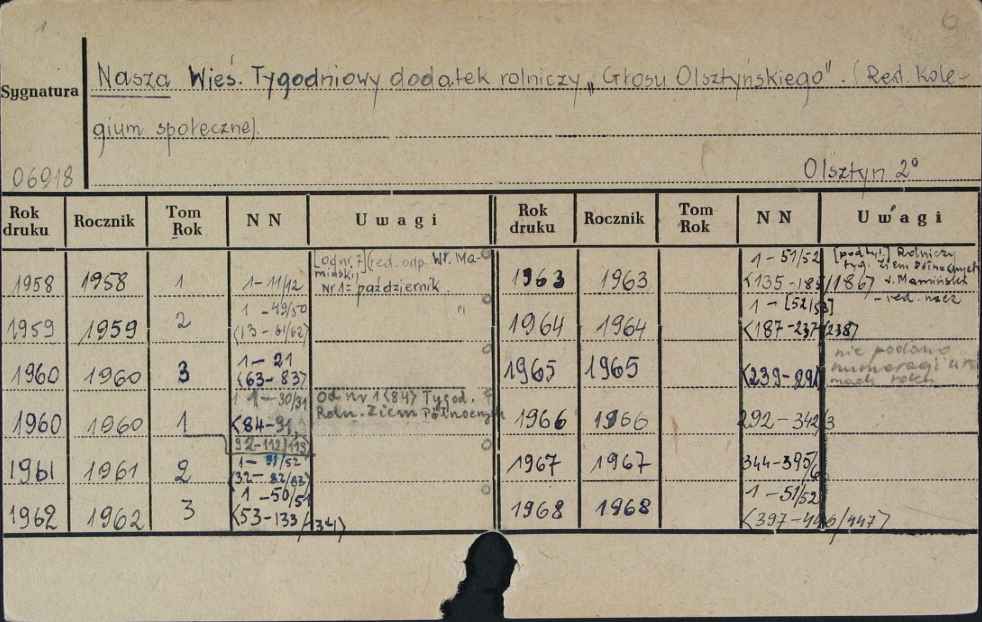 Sygnatura
Nasza Wieś. Tygodniowy dodatek rolniczy „Głosu Olsztyńskiego". (Red. Kole-
gium społeczne).
06918
Olsztyn 2°
Rok druku Rocznik Tom Rok NN Uwagi Rok druku Rocznik Tom Rok NN Uwagi
1958 1958 1 1-11/12
[od nr. 7] (red. odp. Wł. Ma-
miński)
Nr 1 = październik.
1959 1959 2 1-49/50
<13-61/62>
1960 1960 3 1-21
<63-83>
1960 1960 1 1-30/31
<84-91,
92-112/113>
Od nr 1 <84> Tygod.
Roln. Ziem Północnych
1961 1961 2 1-51/52
1962 1962 3 1-50/51
<53-133/
1963 1963 1-51/52
[podtyt.] Rolniczy
tyg. Ziem Północnych
W. Mamiński
- red. nacz
1964 1964 1-[52/53]
<187-237/238>
1965 1965 <239-291
nie podano
numeracji
1966 1966 292-342/3
1967 1967 344-395/6
1968 1968 1-51/52
<397-446/447>